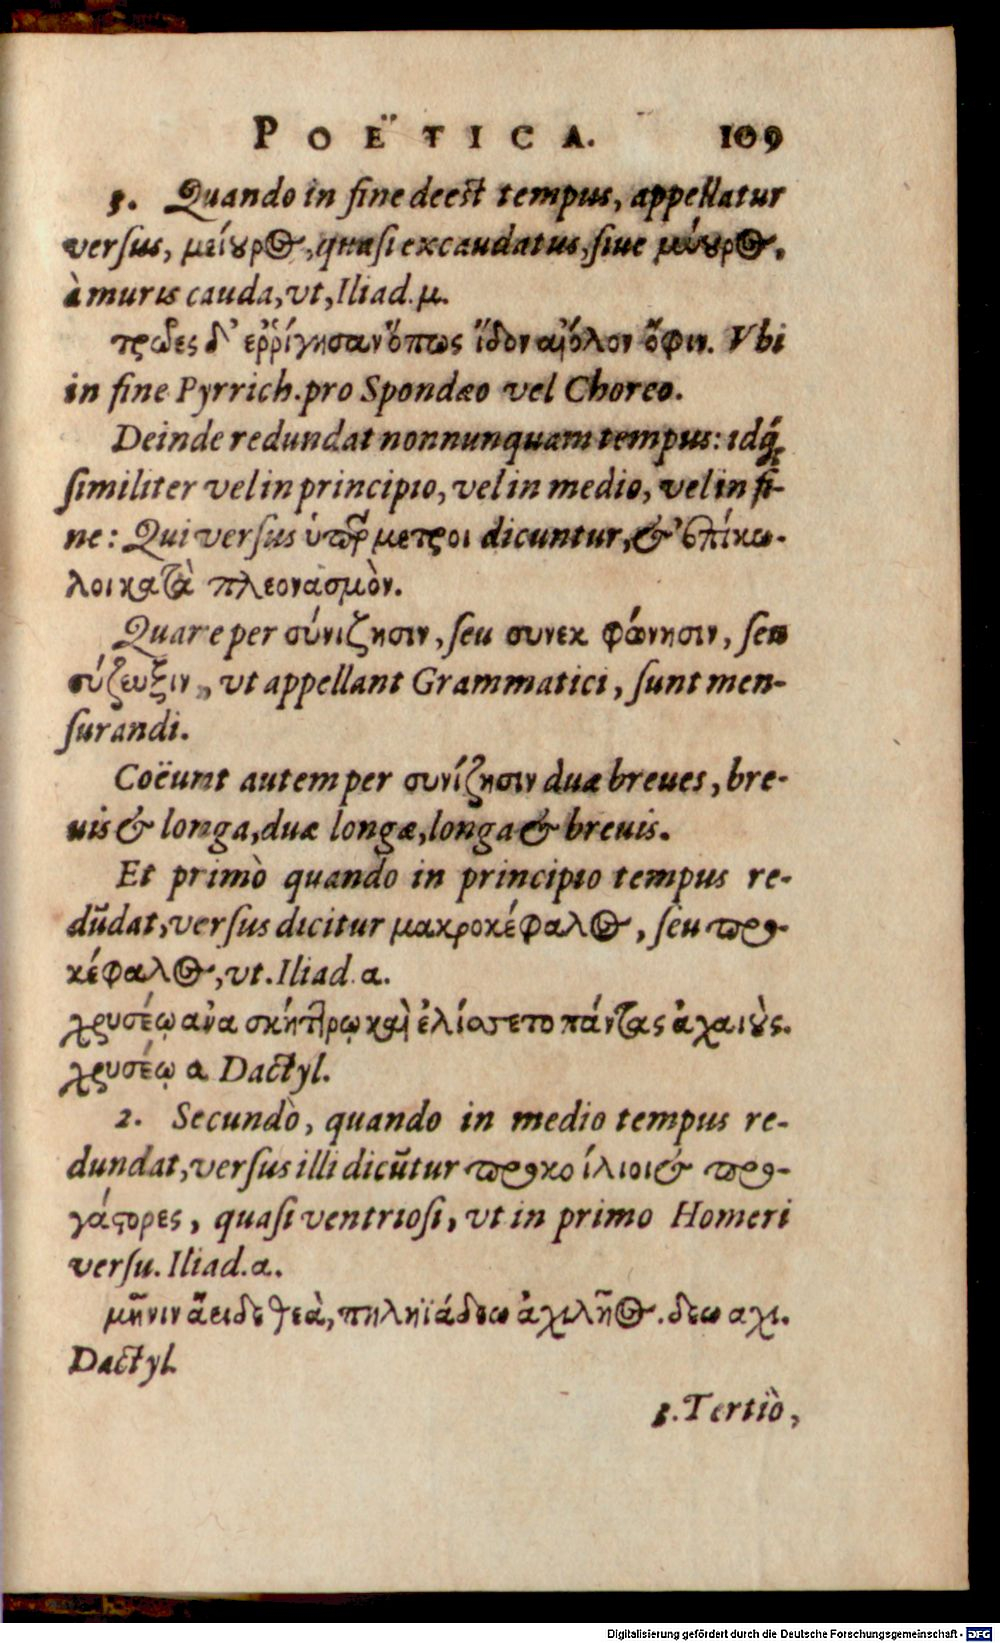 POËTICA. 109
3. Quando in fine deest tempus, appellatur
versus, μείουρος, quasi excaudatus, siue μύουρος,
à muris cauda, vt, Iliad. μ.
τρωες δ' ερῤίγησαν ὅπως ἴδον αἰόλον ὄφιν. Vbi
in fine Pyrrich. pro Spondæo vel Choreo.
Deinde redundat nonnunquam tempus: idq́;
similiter vel in principio, vel in medio, vel in fi-
ne: Qui versus ὑπέρ μετροι dicuntur, & ἐπίκω-
λοι κατὰ πλεονασμὸν.
Quare per σύνιζησιν, seu συνεκ φώνησιν, seu
σύζευξιν, vt appellant Grammatici, sunt men-
surandi.
Coëunt autem per συνίζησιν duæ breues, bre-
uis & longa, duæ longæ, longa & breuis.
Et primò quando in principio tempus re-
dūdat, versus dicitur μακροκέφαλος, seu προ-
κέφαλος, vt. Iliad. α.
χρυσέῳ ανα σκήπτρῳ καὶ ἐλίσσετο πάντας ἀχαιοὺς.
χρυσέῳ α Dactyl.
2. Secundò, quando in medio tempus re-
dundat, versus illi dicūtur προκο ίλιοι & προ-
γάστορες, quasi ventriosi, vt in primo Homeri
versu. Iliad. α.
μῆνιν ἄειδε θεὰ, πηληϊάδεω ἀχιλῆος. δεω αχι.
Dactyl.
3. Tertiò,
Digitalisierung gefördert durch die Deutsche Forschungsgemeinschaft - DFG